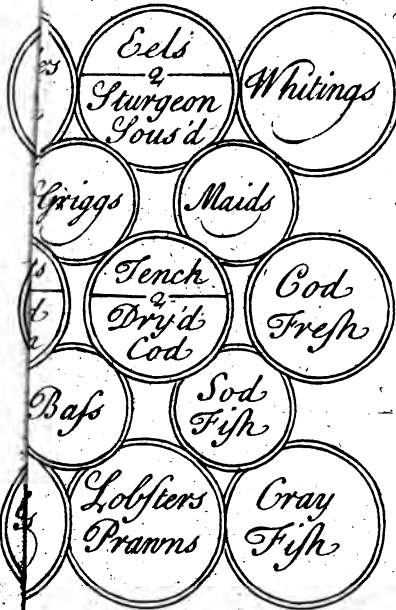 Eels
&
Sturgeon
Sous'd
Whitings
Griggs
Maids
Tench
&
Dry'd
Cod
Cod
Freſh
Baſs
Sod
Fiſh
Lobſters
Prawns
Cray
Fiſh